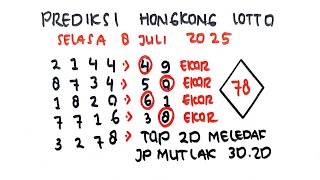 PREDIKSI HONGKONG LOTTO
SELASA 8 JULI 2025
2 1 4 4 > 4 9 EKOR
8 7 3 4 > 5 0 EKOR
1 8 2 0 > 6 1 EKOR
7 7 1 6 > 3 8 EKOR
3 2 7 8 > TOP 2D MELEDAK
JP MUTLAK 30.20
78